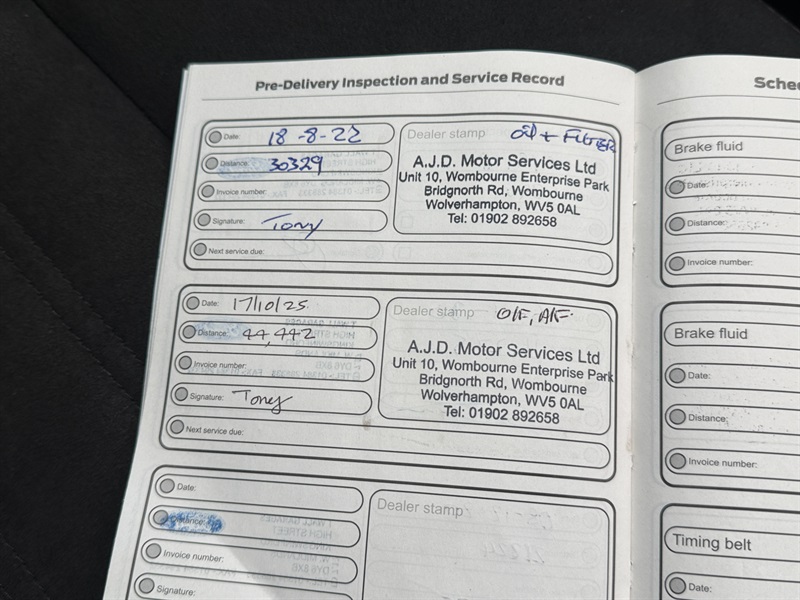 Pre-Delivery Inspection and Service Record
Date: 18-8-22
Distance: 30329
Invoice number:
Signature: Tony
Next service due:
Dealer stamp Oil + FILTER
A.J.D. Motor Services Ltd
Unit 10, Wombourne Enterprise Park
Bridgnorth Rd, Wombourne
Wolverhampton, WV5 0AL
Tel: 01902 892658
Date: 17/10/25
Distance: 44,442
Invoice number:
Signature: Tony
Next service due:
Dealer stamp O/F, A/F.
A.J.D. Motor Services Ltd
Unit 10, Wombourne Enterprise Park
Bridgnorth Rd, Wombourne
Wolverhampton, WV5 0AL
Tel: 01902 892658
Date:
Distance:
Invoice number:
Signature:
Dealer stamp
Brake fluid
Date:
Distance:
Invoice number:
Brake fluid
Date:
Distance:
Invoice number:
Timing belt
Date: